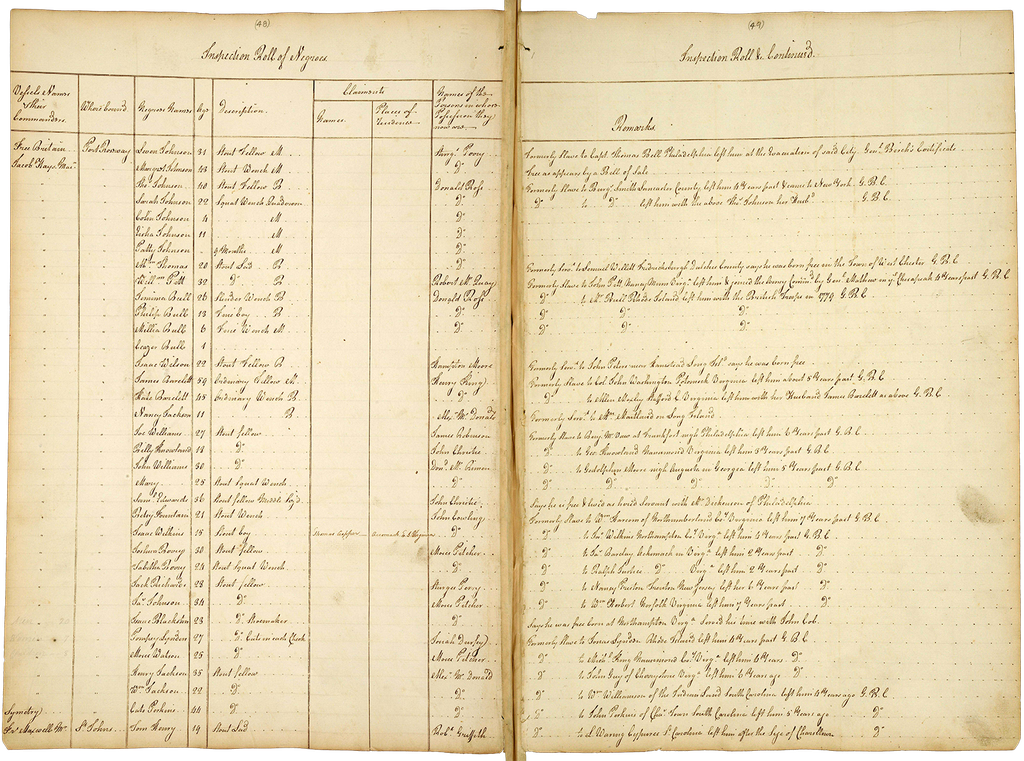 (48)
Inspection Roll of Negroes
Vessels Names & their Commanders
Where bound
Negroes Names
Age
Description
Claimants
Names
Places of Residence
Names of the Persons in whose Possession they now are
Free Britain Port Roseway Simon Johnson 31 Stout Fellow M Serjt. Perry
Jacob Hays Mar. Mary A Johnson 43 Stout Wench M Do
Thos. Johnson 40 Stout Fellow B Donald Ross
Sarah Johnson 22 Squat Wench Quadroon Do
Colin Johnson 4 M Do
Johnson 11 M Do
Patty Johnson 9 Months M Do
Thomas 20 Stout Lad B Do
Willm. Patt 32 Do B Robert
Jemima Bull 26 Slender Wench B Donald Ross
Philip Bull 13 Fine boy B Do
Millia Bull 6 Fine Wench M Do
Ceazer Bull 1
Isaac Wilson 22 Stout Fellow B Hampton Moore
James Barclett 59 Ordinary Fellow M Henry
Kate Barclett 45 Ordinary Wench B Do
Nancy Jackson 11 B Alexr. McDonald
Joe Williams 27 Stout fellow James Robinson
Billy 18 Do John Christie
John Williams 30 Do Dond. McCrimon
Mary 25 Stout Squat Wench Do
Saml. Edwards 36 Stout fellow Middle Sizd. John Christie
Betsy Fountain 21 Stout Wench John Cowling
Isaac Wilkins 15 Stout boy Thomas Do
Joshua Bovey 30 Stout fellow Moses Pitcher
Tabitha Bovey 24 Stout Squat Wench Do
Jack Richards 28 Stout fellow Sturges Perry
Jas. Johnson 34 Do Moses Pitcher
Isaac Blackston 23 Do Shoemaker Do
Pompey Lyndon 27 Do Cuts in each Cheek Josiah Durfey
Mose Watson 25 Do Moses Pitcher
Henry Jackson 35 Stout fellow Alexr. McDonald
Wm. Jackson 22 Do Do
Cato Perkins 44 Do Do
Symetry
Jas. Maxwell Mr. St. Johns Tom Henry 19 Stout Lad Robt. Griffith
(49)
Inspection Roll &c. Continued.
Remarks
Formerly Slave to Capt. Thomas Bell Philadelphia left him at the Evacuation of said City. Genl. Birch's Certificate
Free as appears by a Bill of Sale
Formerly Slave to Benjn. Smith Lancaster County, left him 4 Years past & came to New York. G. B. C.
Do to Do left him with the above Thos. Johnson her Husbd. G. B. C.
Formerly Servt. to Samuel Willett Fredericksburgh Dutchess County says he was born free in the Town of West Chester G. B. C.
Formerly Slave to John Patt Virga. left him & joined the Army Commd. by Genl. Mathew on ye. Cheasapeak 4 Years past G. B. C.
Do to Mr. Bull Rhode Island left him with the British Troops in 1779 G. B. C.
Do Do Do
Do Do Do
Formerly Servt. to John Peters near Hamstead Long Isld. says he was born free
Formerly Slave to Col. John Washington Potomack Virginia left him about 5 Years past G. B. C.
Do to Allen Stafford C. Virginia left him with her Husband James Barclett as above G. B. C.
Formerly Servt. to Mrs. Maitland on Long Island
Formerly Slave to Benj. at Frankfort nigh Philadelphia left him 6 Years past G. B. C.
Do to Geo. Nansemond Virginia left him 3 Years past G. B. C.
Do to Godolphin Moore nigh Augusta in Georgia left him 5 Years past G. B. C.
Do Do Do Do Do
Says he is free & lived as hired Servant with Mr. Dickinson of Philadelphia
Formerly Slave to Wm. Northumberland Coy. Virginia left him 7 Years past G. B. C.
Do to Jas. Wilkins Northampton Coy. Virga. left him 4 Years past G. B. C.
Do to Jas. Barclay Achomack in Virga. left him 2 Years past Do
Do to Ralph Do Virga. left him 2 Years past Do
Do to Nancy Preston Trenton New Jersey left her 6 Years past Do
Do to Wm. Herbert Norfolk Virginia left him 7 Years past Do
Says he was free born at Northampton Virga. Served his time with John Cob.
Formerly Slave to Lyndon Rhode Island left him 4 Years past G. B. C.
Do to King Nansemond Coy. Virga. left him 4 Years Do
Do to John Guy of Virga. left him 6 Years ago Do
Do to Wm. Williamson of the Indian Land South Carolina left him 4 Years ago G. B. C.
Do to John Perkins of Chas. Town South Carolina left him 5 Years ago Do
Do to Waring So. Carolina left him after the Siege of Charlestown Do